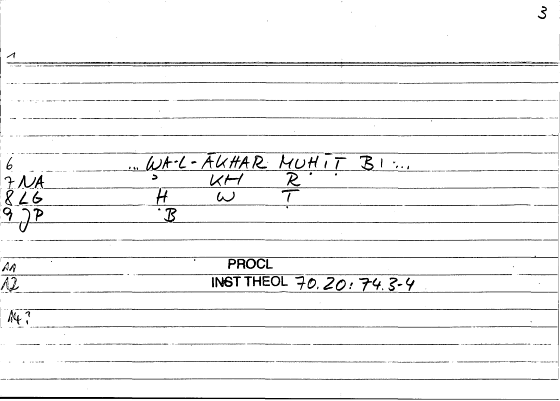 3
1
6 ... WA-L-ĀKHAR MUḤĪṬ BI ...
7 NA ʾ KH R
8 LG Ḥ W Ṭ
9 JP B
11 PROCL
12 INST THEOL 70.20 : 74.3-4
14?